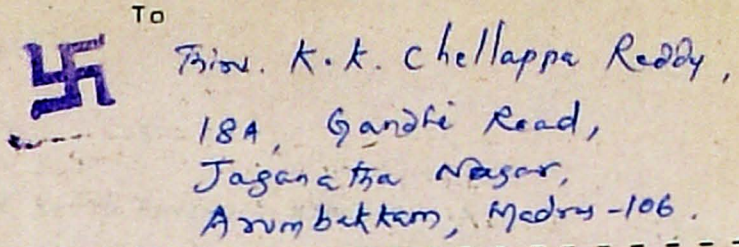 To
Thiru. K. K. Chellappa Reddy,
18A, Gandhi Road,
Jaganatha Nagar,
Arumbakkam, Madras-106.